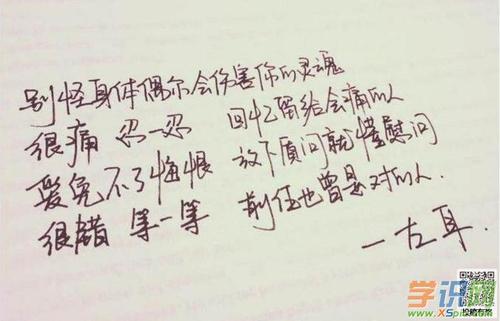 别怪身体偶尔会伤害你的灵魂
很痛 忍一忍 回忆留给会痛的人
爱免不了悔恨 放下质问就懂慰问
很醋 等一等 前任也曾是对的人.
—左耳.
学识网